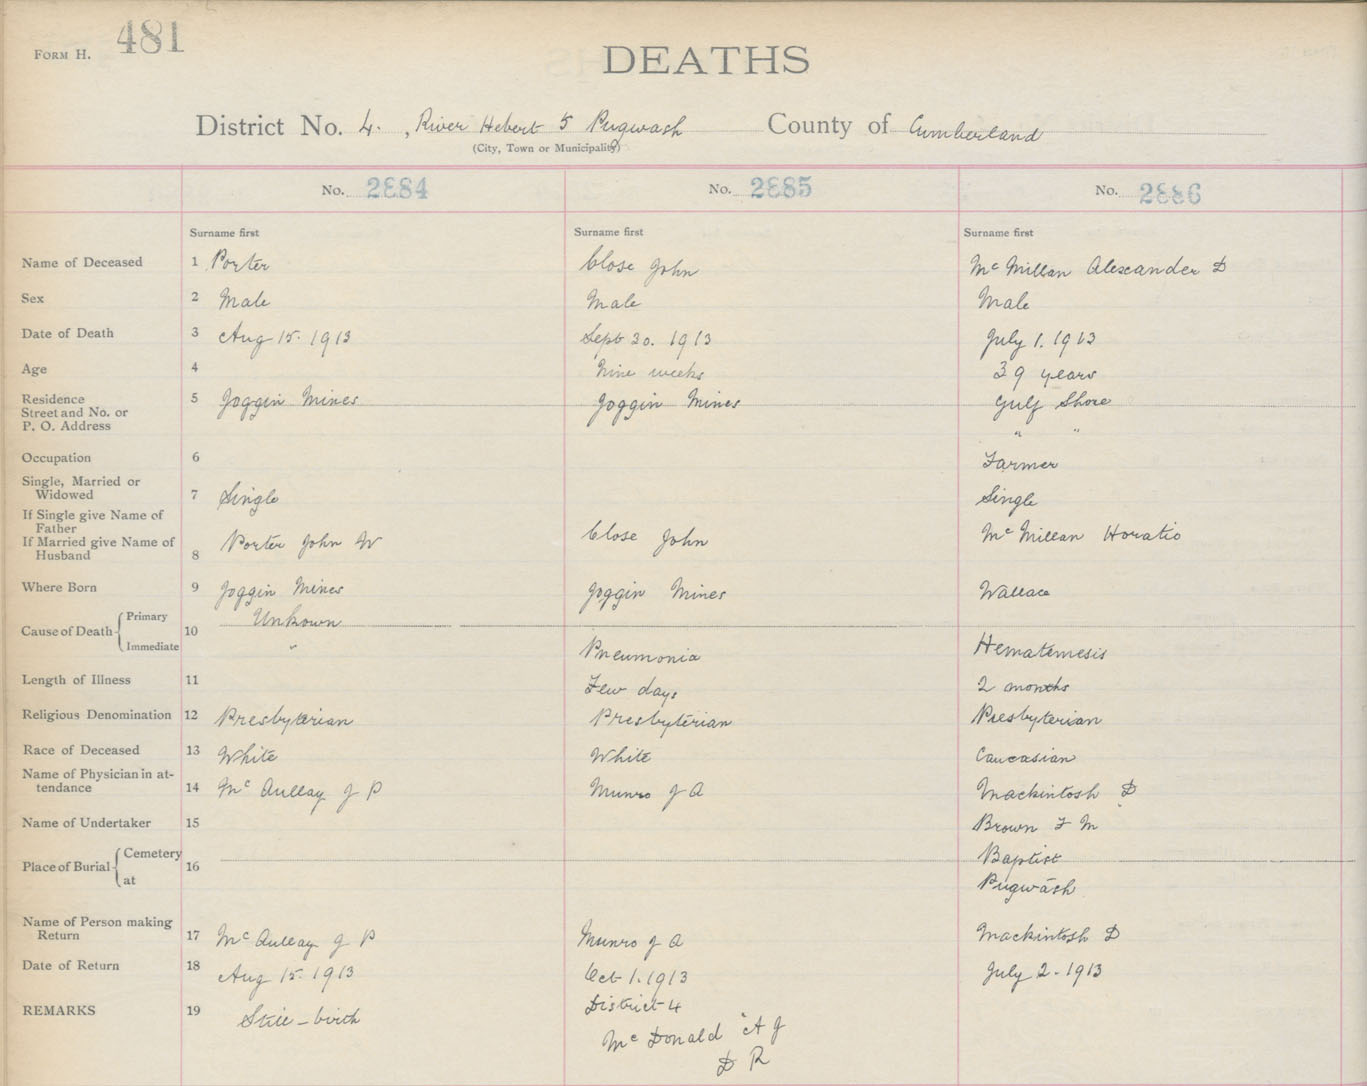 FORM H. 481
DEATHS
District No. 4. , River Hebert & Pugwash County of Cumberland
(City, Town or Municipality)
No. 2884 No. 2885 No. 2886
Surname first Surname first Surname first
Name of Deceased 1 Porter Close John Mc Millan Alexander D
Sex 2 Male Male Male
Date of Death 3 Aug 15. 1913 Sept 30. 1913 July 1. 1913
Age 4 Nine weeks 39 years
Residence 5 Joggin Mines Joggin Mines Gulf Shore
Street and No. or
P. O. Address " "
Occupation 6 Farmer
Single, Married or
Widowed 7 Single Single
If Single give Name of
Father
If Married give Name of
Husband 8 Porter John W Close John Mc Millan Horatio
Where Born 9 Joggin Mines Joggin Mines Wallace
Cause of Death Primary 10 Unkown
Immediate " Pneumonia Hematemesis
Length of Illness 11 Few days 2 months
Religious Denomination 12 Presbyterian Presbyterian Presbyterian
Race of Deceased 13 White White Caucasian
Name of Physician in at-
tendance 14 Mc Aullay J P Munro J A Mackintosh D
Name of Undertaker 15 Brown F M
Place of Burial Cemetery 16 Baptist
at Pugwash
Name of Person making
Return 17 Mc Aullay J P Munro J A Mackintosh D
Date of Return 18 Aug 15. 1913 Oct 1. 1913 July 2. 1913
REMARKS 19 Still-birth District 4
Mc Donald A J
D R